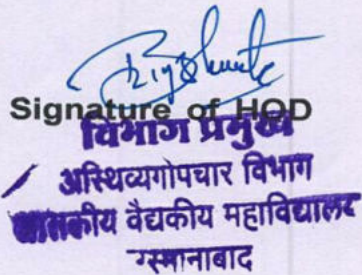 Signature of HOD
विभाग प्रमुख
अस्थिव्यंगोपचार विभाग
वैद्यकीय महाविद्यालय